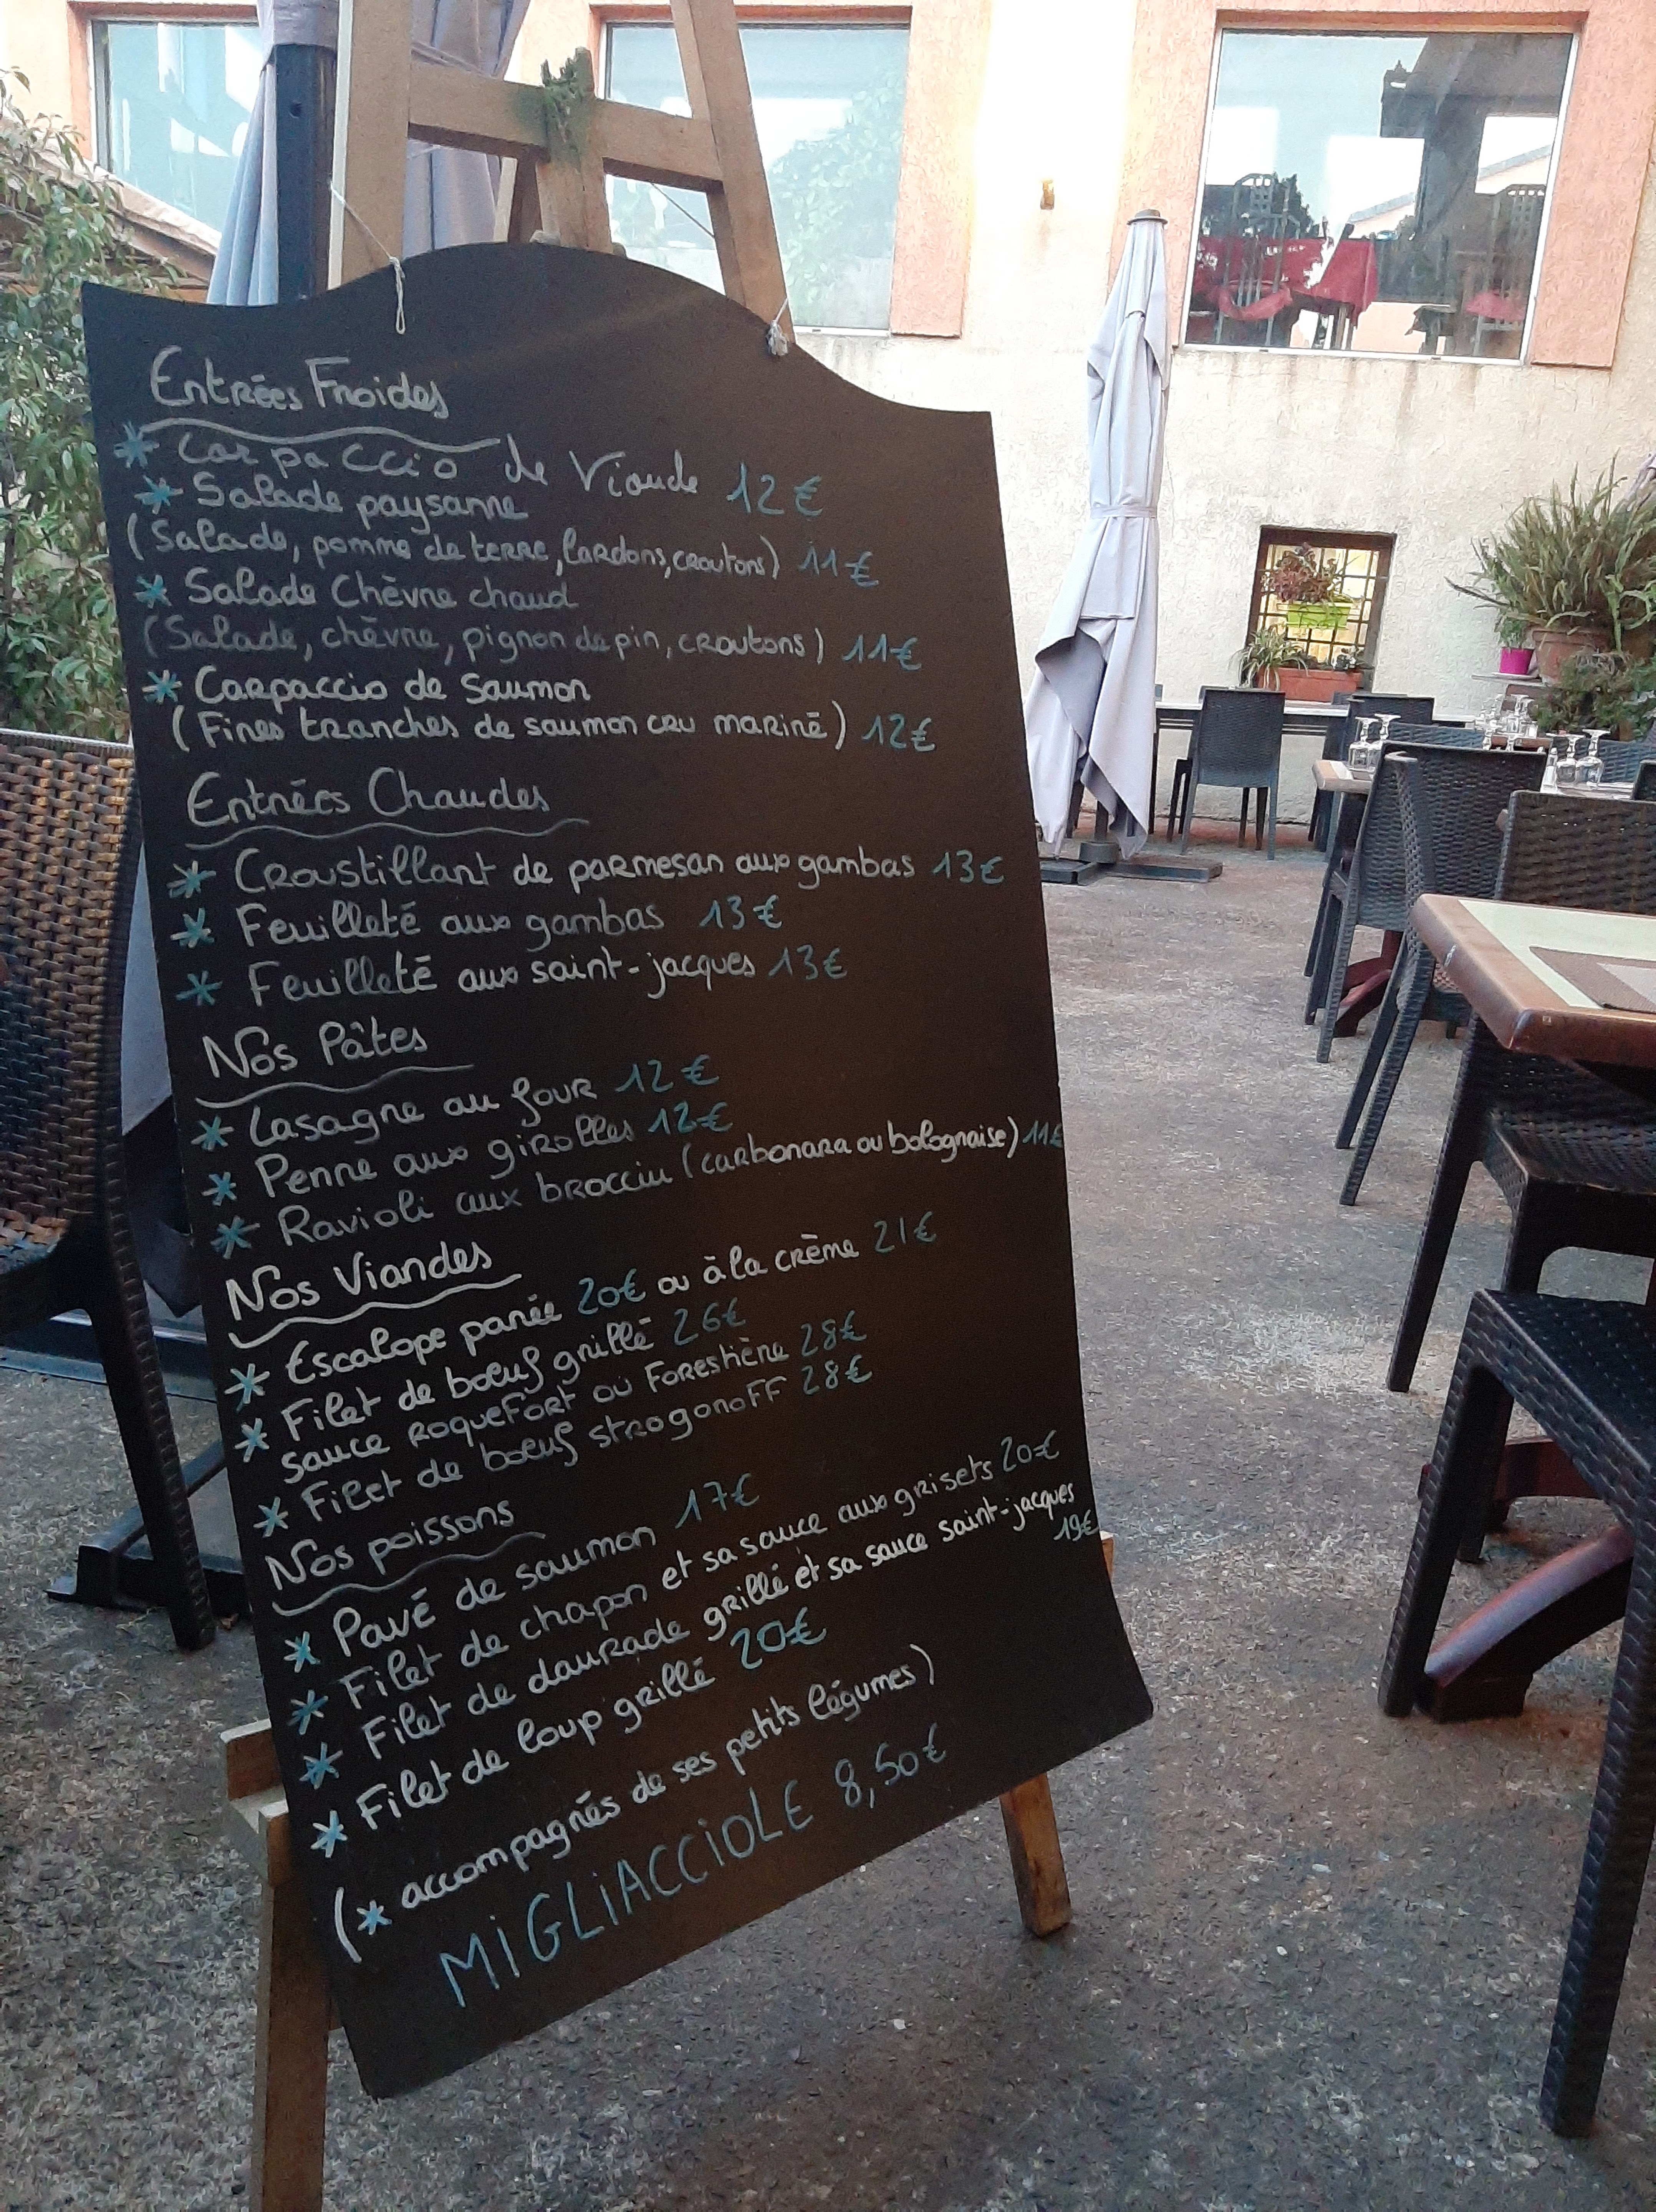 Entrées Froides
* Carpaccio de Viande 12€
* Salade paysanne
(Salade, pomme de terre, lardons, croutons) 11€
* Salade Chèvre chaud
(Salade, chèvre, pignon de pin, croutons) 11€
* Carpaccio de saumon
(Fines tranches de saumon cru mariné) 12€
Entrées Chaudes
* Croustillant de parmesan aux gambas 13€
* Feuilleté aux gambas 13€
* Feuilleté aux saint-jacques 13€
Nos Pâtes
* Lasagne au four 12€
* Penne aux girolles 12€
* Ravioli aux brocciu (carbonara ou bolognaise) 11€
Nos Viandes
* Escalope panée 20€ ou à la crème 21€
* Filet de boeuf grillé 26€
sauce roquefort ou Forestière 28€
* Filet de boeuf strogonoff 28€
Nos poissons
* Pavé de saumon 17€
* Filet de chapon et sa sauce aux grisets 20€
* Filet de daurade grillé et sa sauce saint-jacques
19€
* Filet de loup grillé 20€
(* accompagnés de ses petits légumes)
MIGLIACCIOLE 8,50€